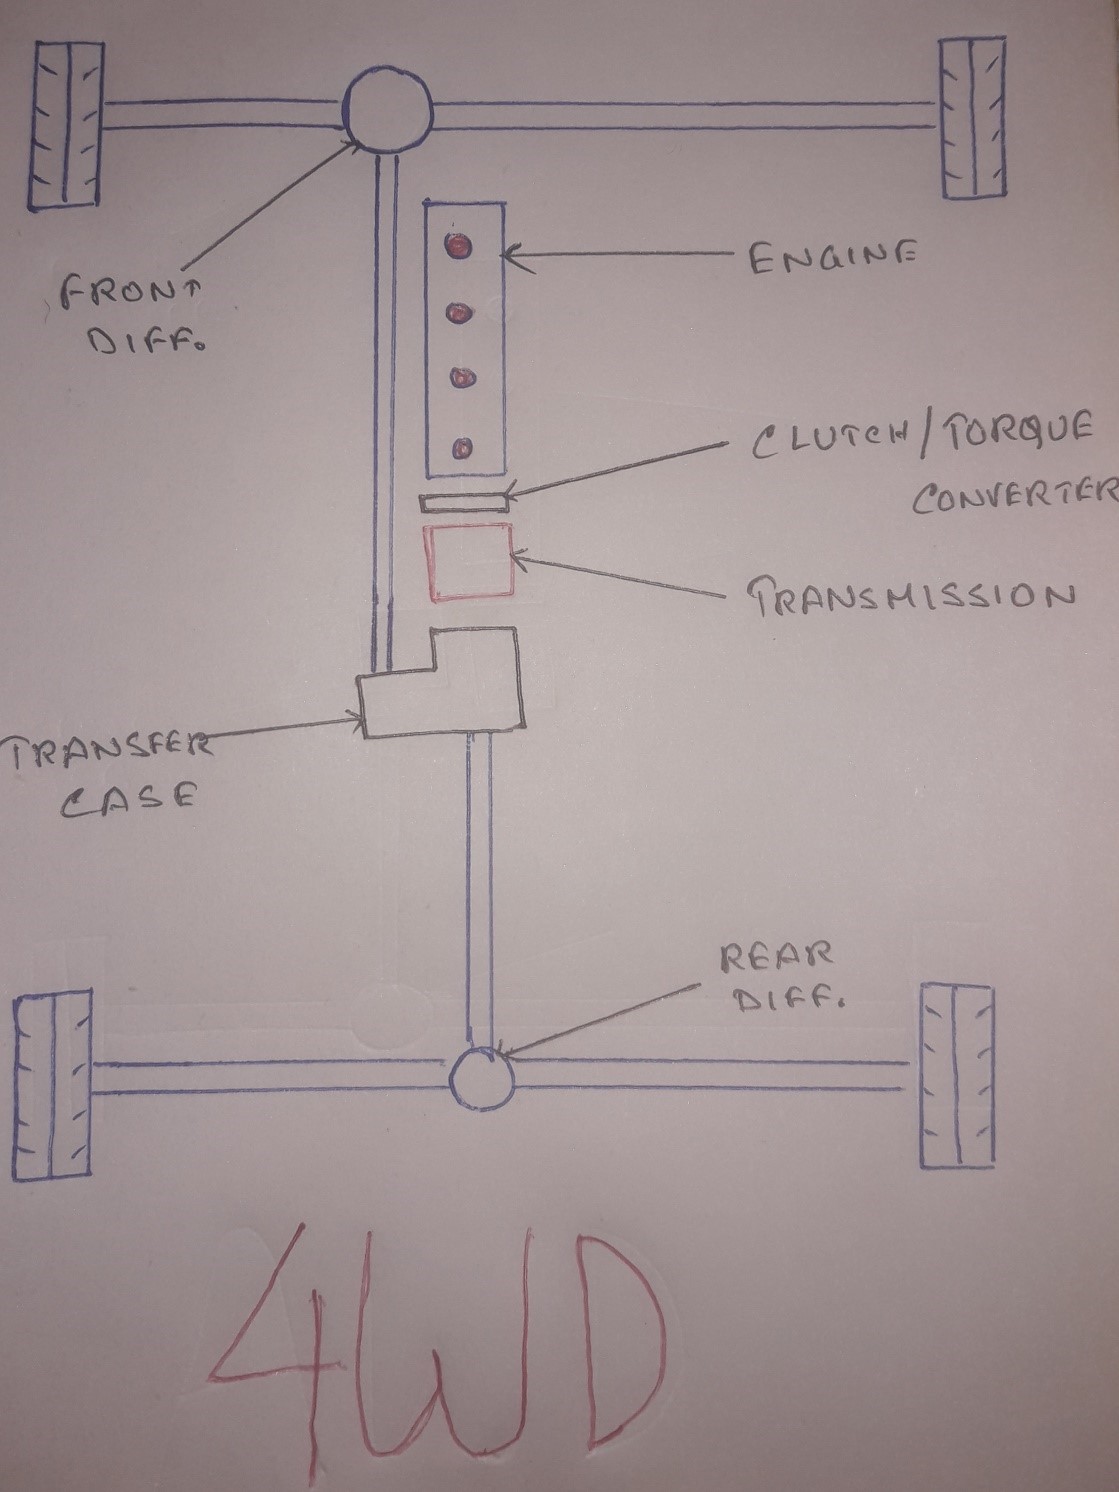 FRONT
DIFF.
ENGINE
CLUTCH/TORQUE
CONVERTER
TRANSMISSION
TRANSFER
CASE
REAR
DIFF.
4WD